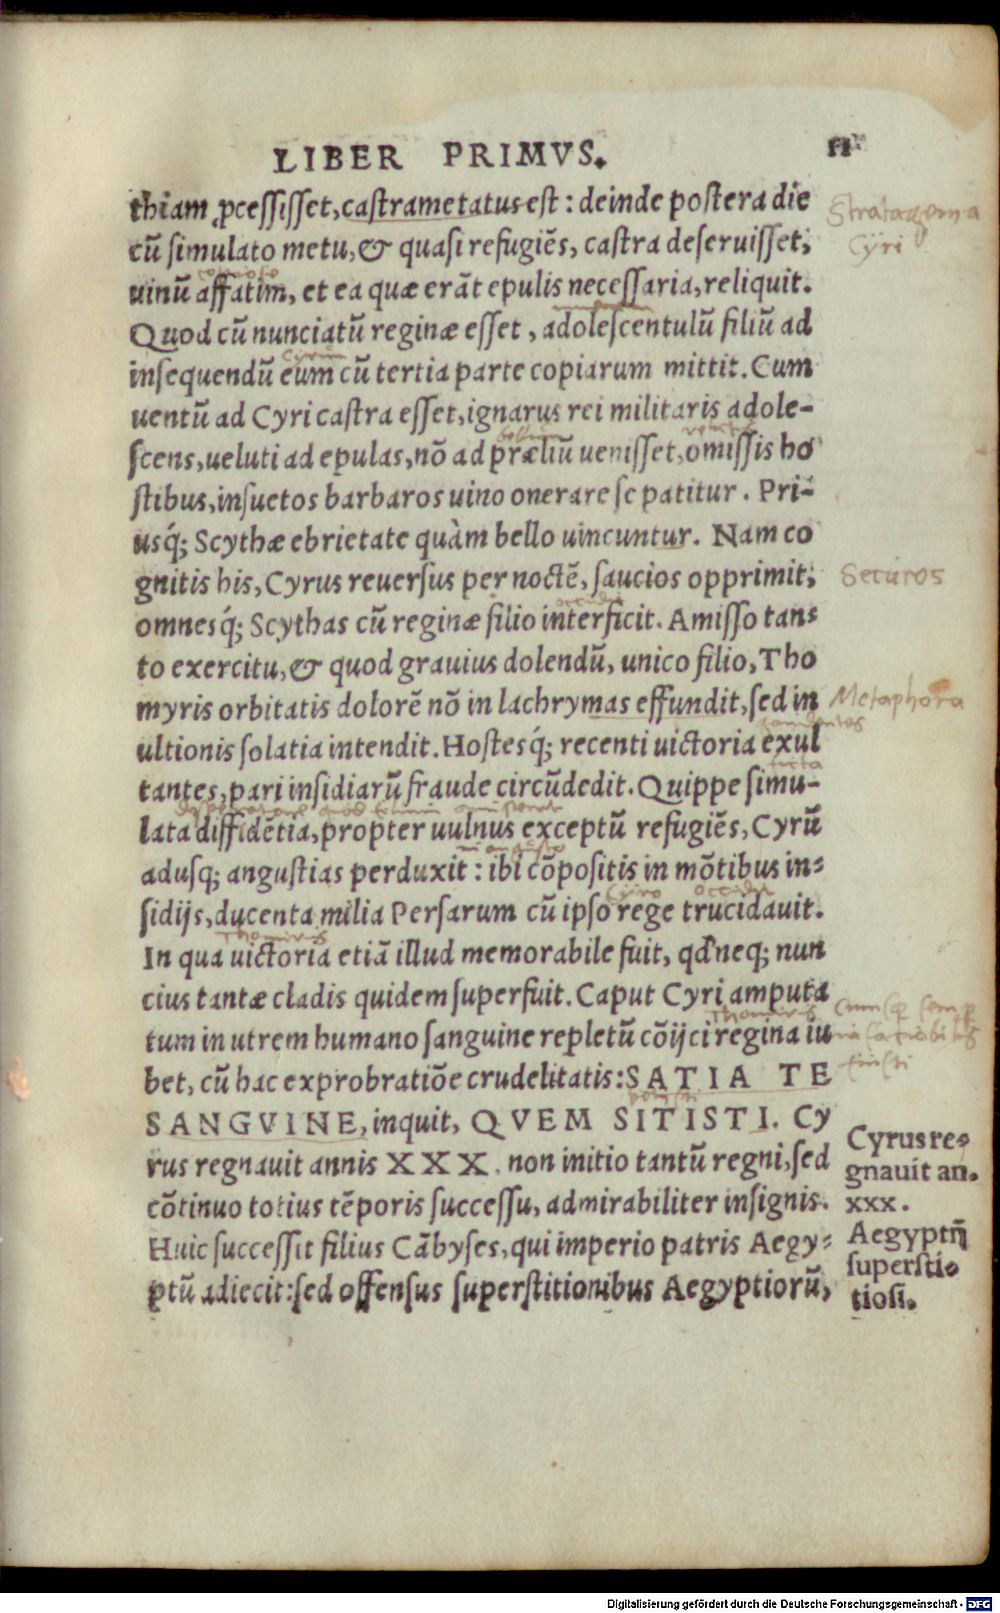 LIBER PRIMVS. 11
thiam ꝓcessisset, castrametatus est: deinde postera die
Stratagema
cū simulato metu, & quasi refugiēs, castra deseruisset;
Cyri
copiose
uinū affatim, et ea quæ erāt epulis necessaria, reliquit.
Quod cū nunciatū reginæ esset, adolescentulū filiū ad
Cyrum
insequendū eum cū tertia parte copiarum mittit. Cum
uentū ad Cyri castra esset, ignarus rei militaris adole-
bellum
scens, ueluti ad epulas, nō ad præliū uenisset, omissis ho
stibus, insuetos barbaros uino onerare se patitur. Pri-
usq́; Scythæ ebrietate quàm bello uincuntur. Nam co
gnitis his, Cyrus reuersus per noctē, saucios opprimit;
Securos
occidit
omnesq́; Scythas cū reginæ filio interficit. Amisso tan-
to exercitu, & quod grauius dolendū, unico filio, Tho
myris orbitatis dolorē nō in lachrymas effundit, sed in
Metaphora
gaudentes
ultionis solatia intendit. Hostesq́; recenti uictoria exul
ficta
tantes, pari insidiarū fraude circūdedit. Quippe simu-
desperatione quod filium amiserat
lata diffidētia, propter uulnus exceptū refugiēs, Cyrū
adusq; angustias perduxit: ibi cōpositis in mōtibus in-
Cyro occidit
sidijs, ducenta milia Persarum cū ipso rege trucidauit.
Thomiris
In qua uictoria etiā illud memorabile fuit, qđ neq; nun
cius tantæ cladis quidem superfuit. Caput Cyri amputa
Thomiris
tum in utrem humano sanguine repletū cōijci regina iu
bet, cū hac exprobratiōe crudelitatis: SATIA TE
fuisti
SANGVINE, inquit, QVEM SITISTI. Cy
rus regnauit annis XXX. non initio tantū regni, sed
Cyrus re-
gnauit an.
xxx.
cōtinuo totius tēporis successu, admirabiliter insignis.
Huic successit filius Cābyses, qui imperio patris Aegy-
ptū adiecit: sed offensus superstitionibus Aegyptiorū,
Aegyptij
supersti-
tiosi.
Digitalisierung gefördert durch die Deutsche Forschungsgemeinschaft - DFG